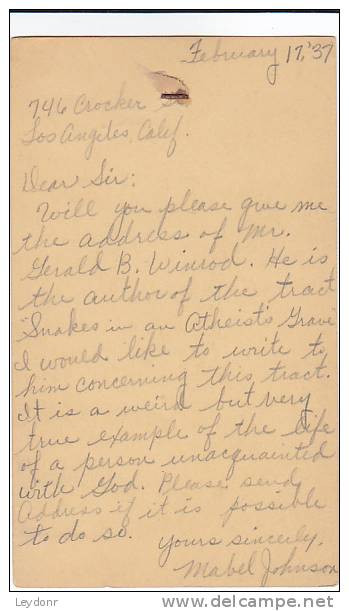 February 17,'37
746 Crocker St
Los Angeles, Calif.
Dear Sir:
Will you please give me
the address of Mr.
Gerald B. Winrod. He is
the author of the tract
"Snakes in an Atheist's Grave"
I would like to write to
him concerning this tract.
It is a weird but very
true example of the life
of a person unacquainted
with God. Please send
Address if it is possible
to do so.
Yours sincerely,
Mabel Johnson
Leydonr
delcampe.net